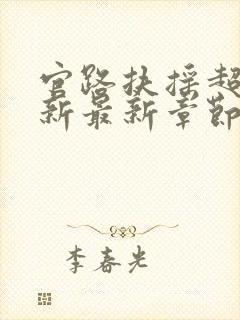 官路扶摇超
新最新章节
李春光